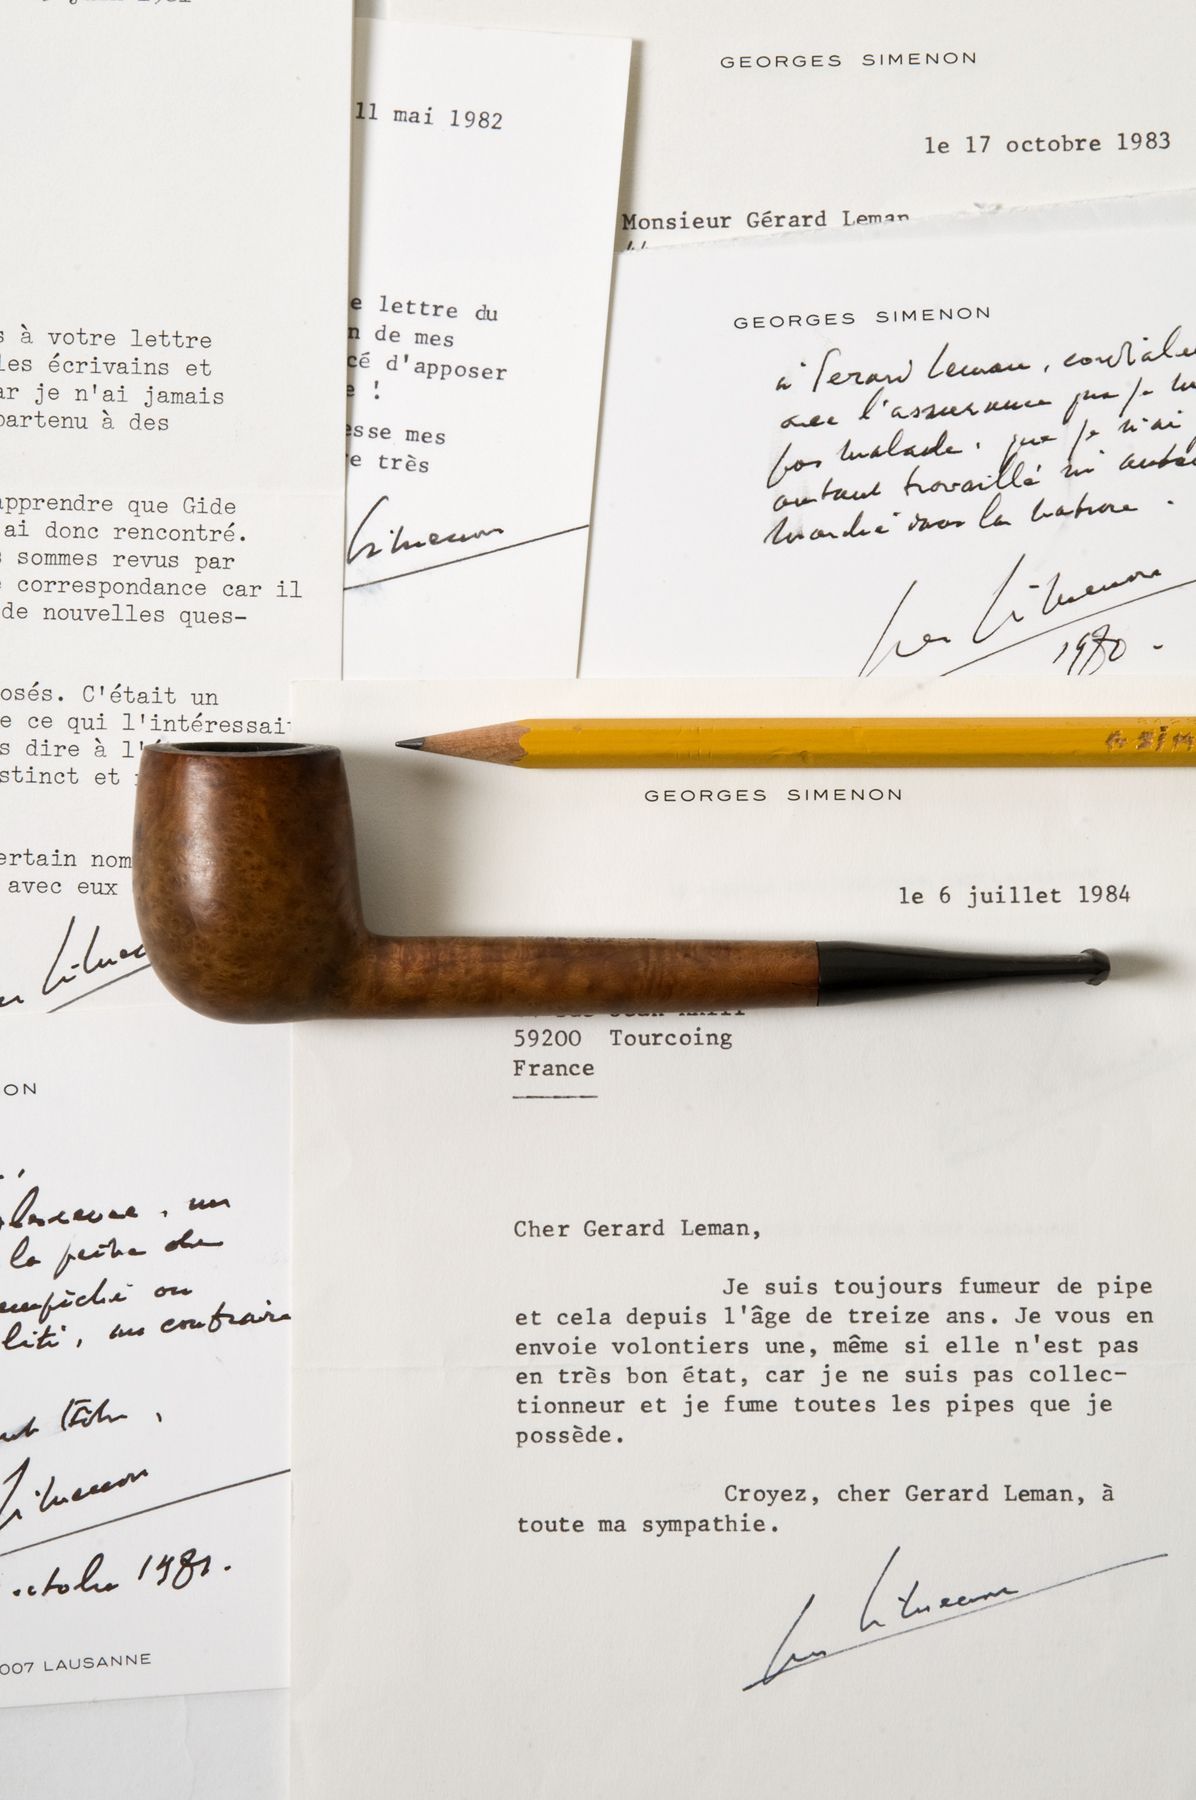 11 mai 1982
e lettre du
n de mes
cé d'apposer
e !
esse mes
e très
Simenon
GEORGES SIMENON
le 17 octobre 1983
Monsieur Gérard Leman
GEORGES SIMENON
à Gerard Leman, cordiale
avec l'assurance que je
pas malade, que je n'ai
autant travaillé ni autant
marché dans la nature.
Simenon
1980.
s à votre lettre
les écrivains et
ar je n'ai jamais
partenu à des
apprendre que Gide
ai donc rencontré.
s sommes revus par
e correspondance car il
de nouvelles ques-
osés. C'était un
e ce qui l'intéressai
s dire à l'
stinct et
ertain nom
avec eux
G SIM
GEORGES SIMENON
le 6 juillet 1984
59200 Tourcoing
France
Cher Gerard Leman,
Je suis toujours fumeur de pipe
et cela depuis l'âge de treize ans. Je vous en
envoie volontiers une, même si elle n'est pas
en très bon état, car je ne suis pas collec-
tionneur et je fume toutes les pipes que je
possède.
Croyez, cher Gerard Leman, à
toute ma sympathie.
Simenon
ON
un
la peine de
ou
au contraire
Simenon
octobre 1981.
007 LAUSANNE